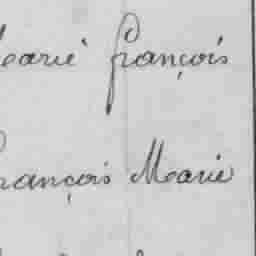 Marie françois
françois Marie